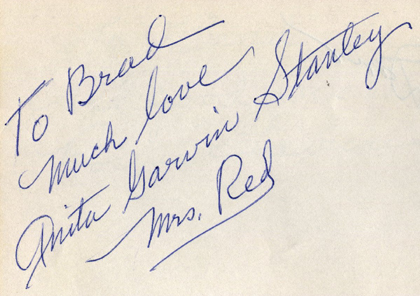 To Brad
Much love
Anita Garvin Stanley
Mrs. Red